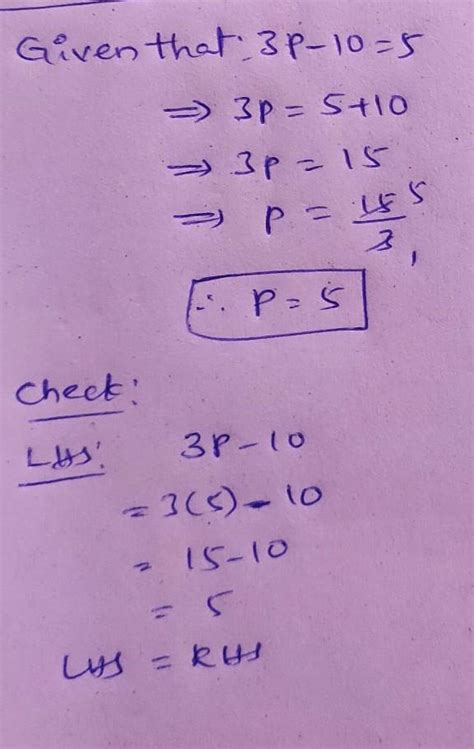 Given that: 3P-10=5
⇒ 3P = 5+10
⇒ 3P = 15
⇒ P = 15/3 5 1
∴ P = 5
Check:
LHS: 3P-10
= 3(5)-10
= 15-10
= 5
LHS = RHS